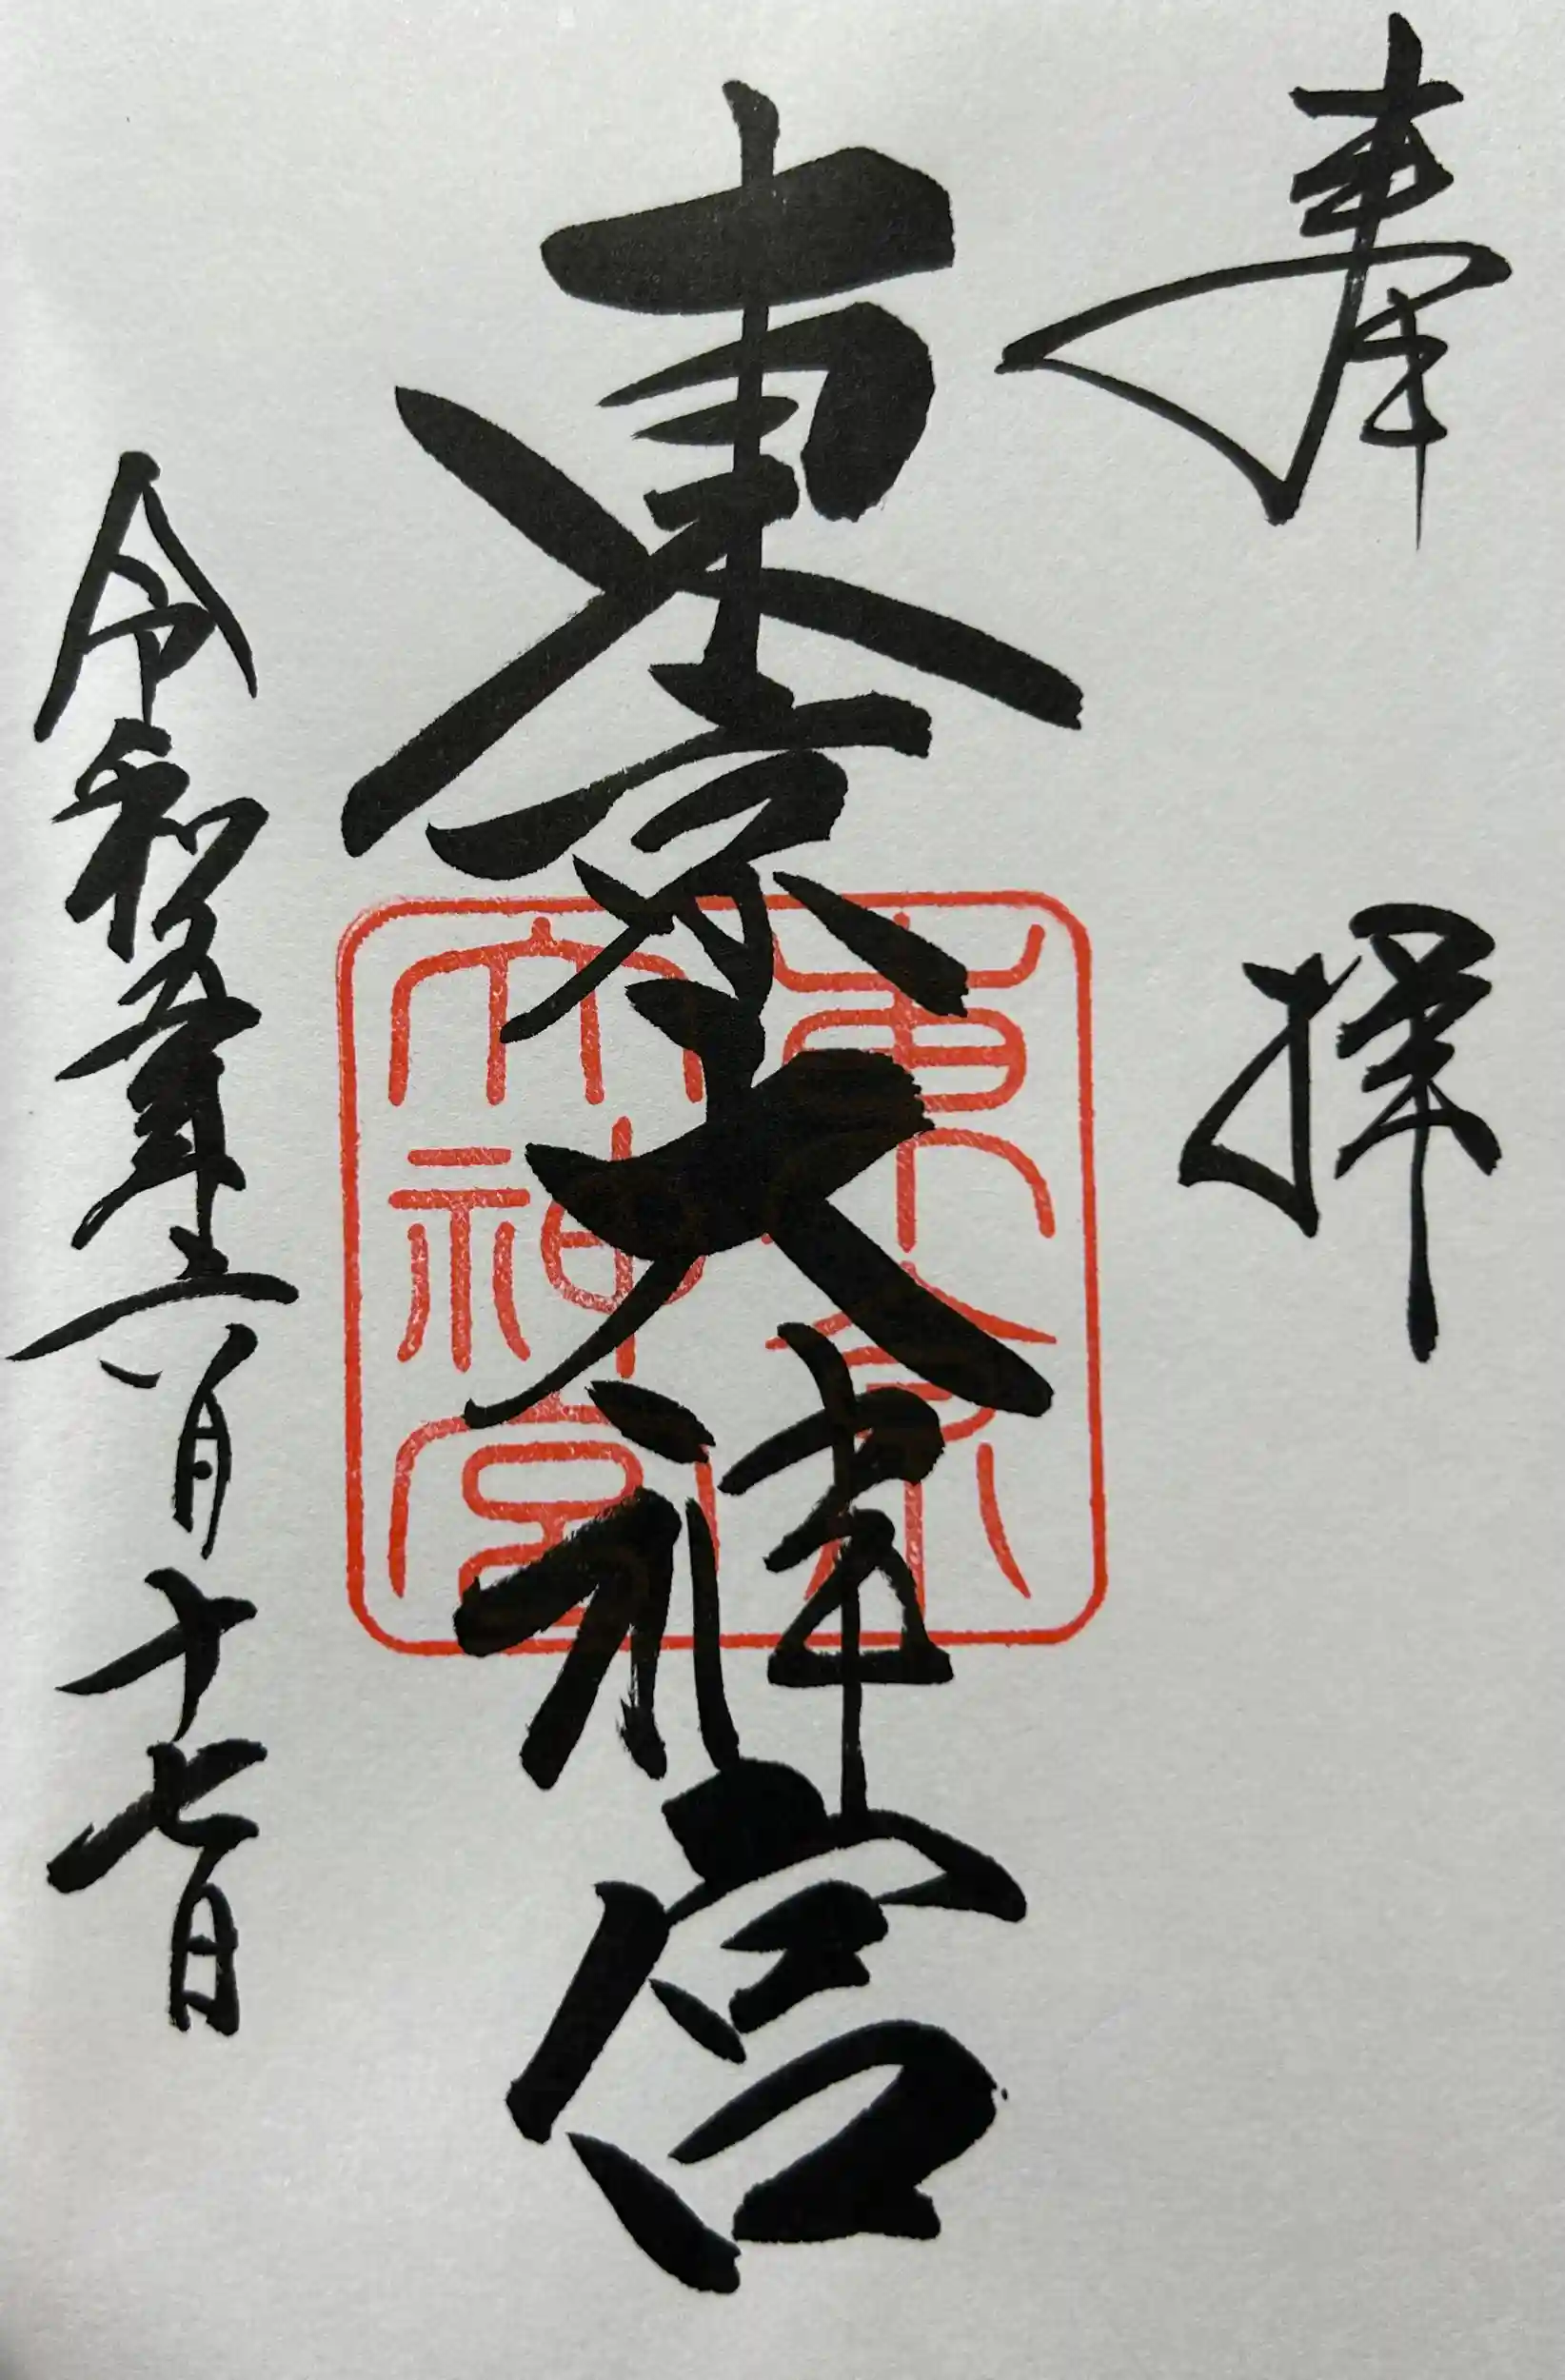 奉拝
東京大神宮
東京
大神宮
令和五年六月十七日